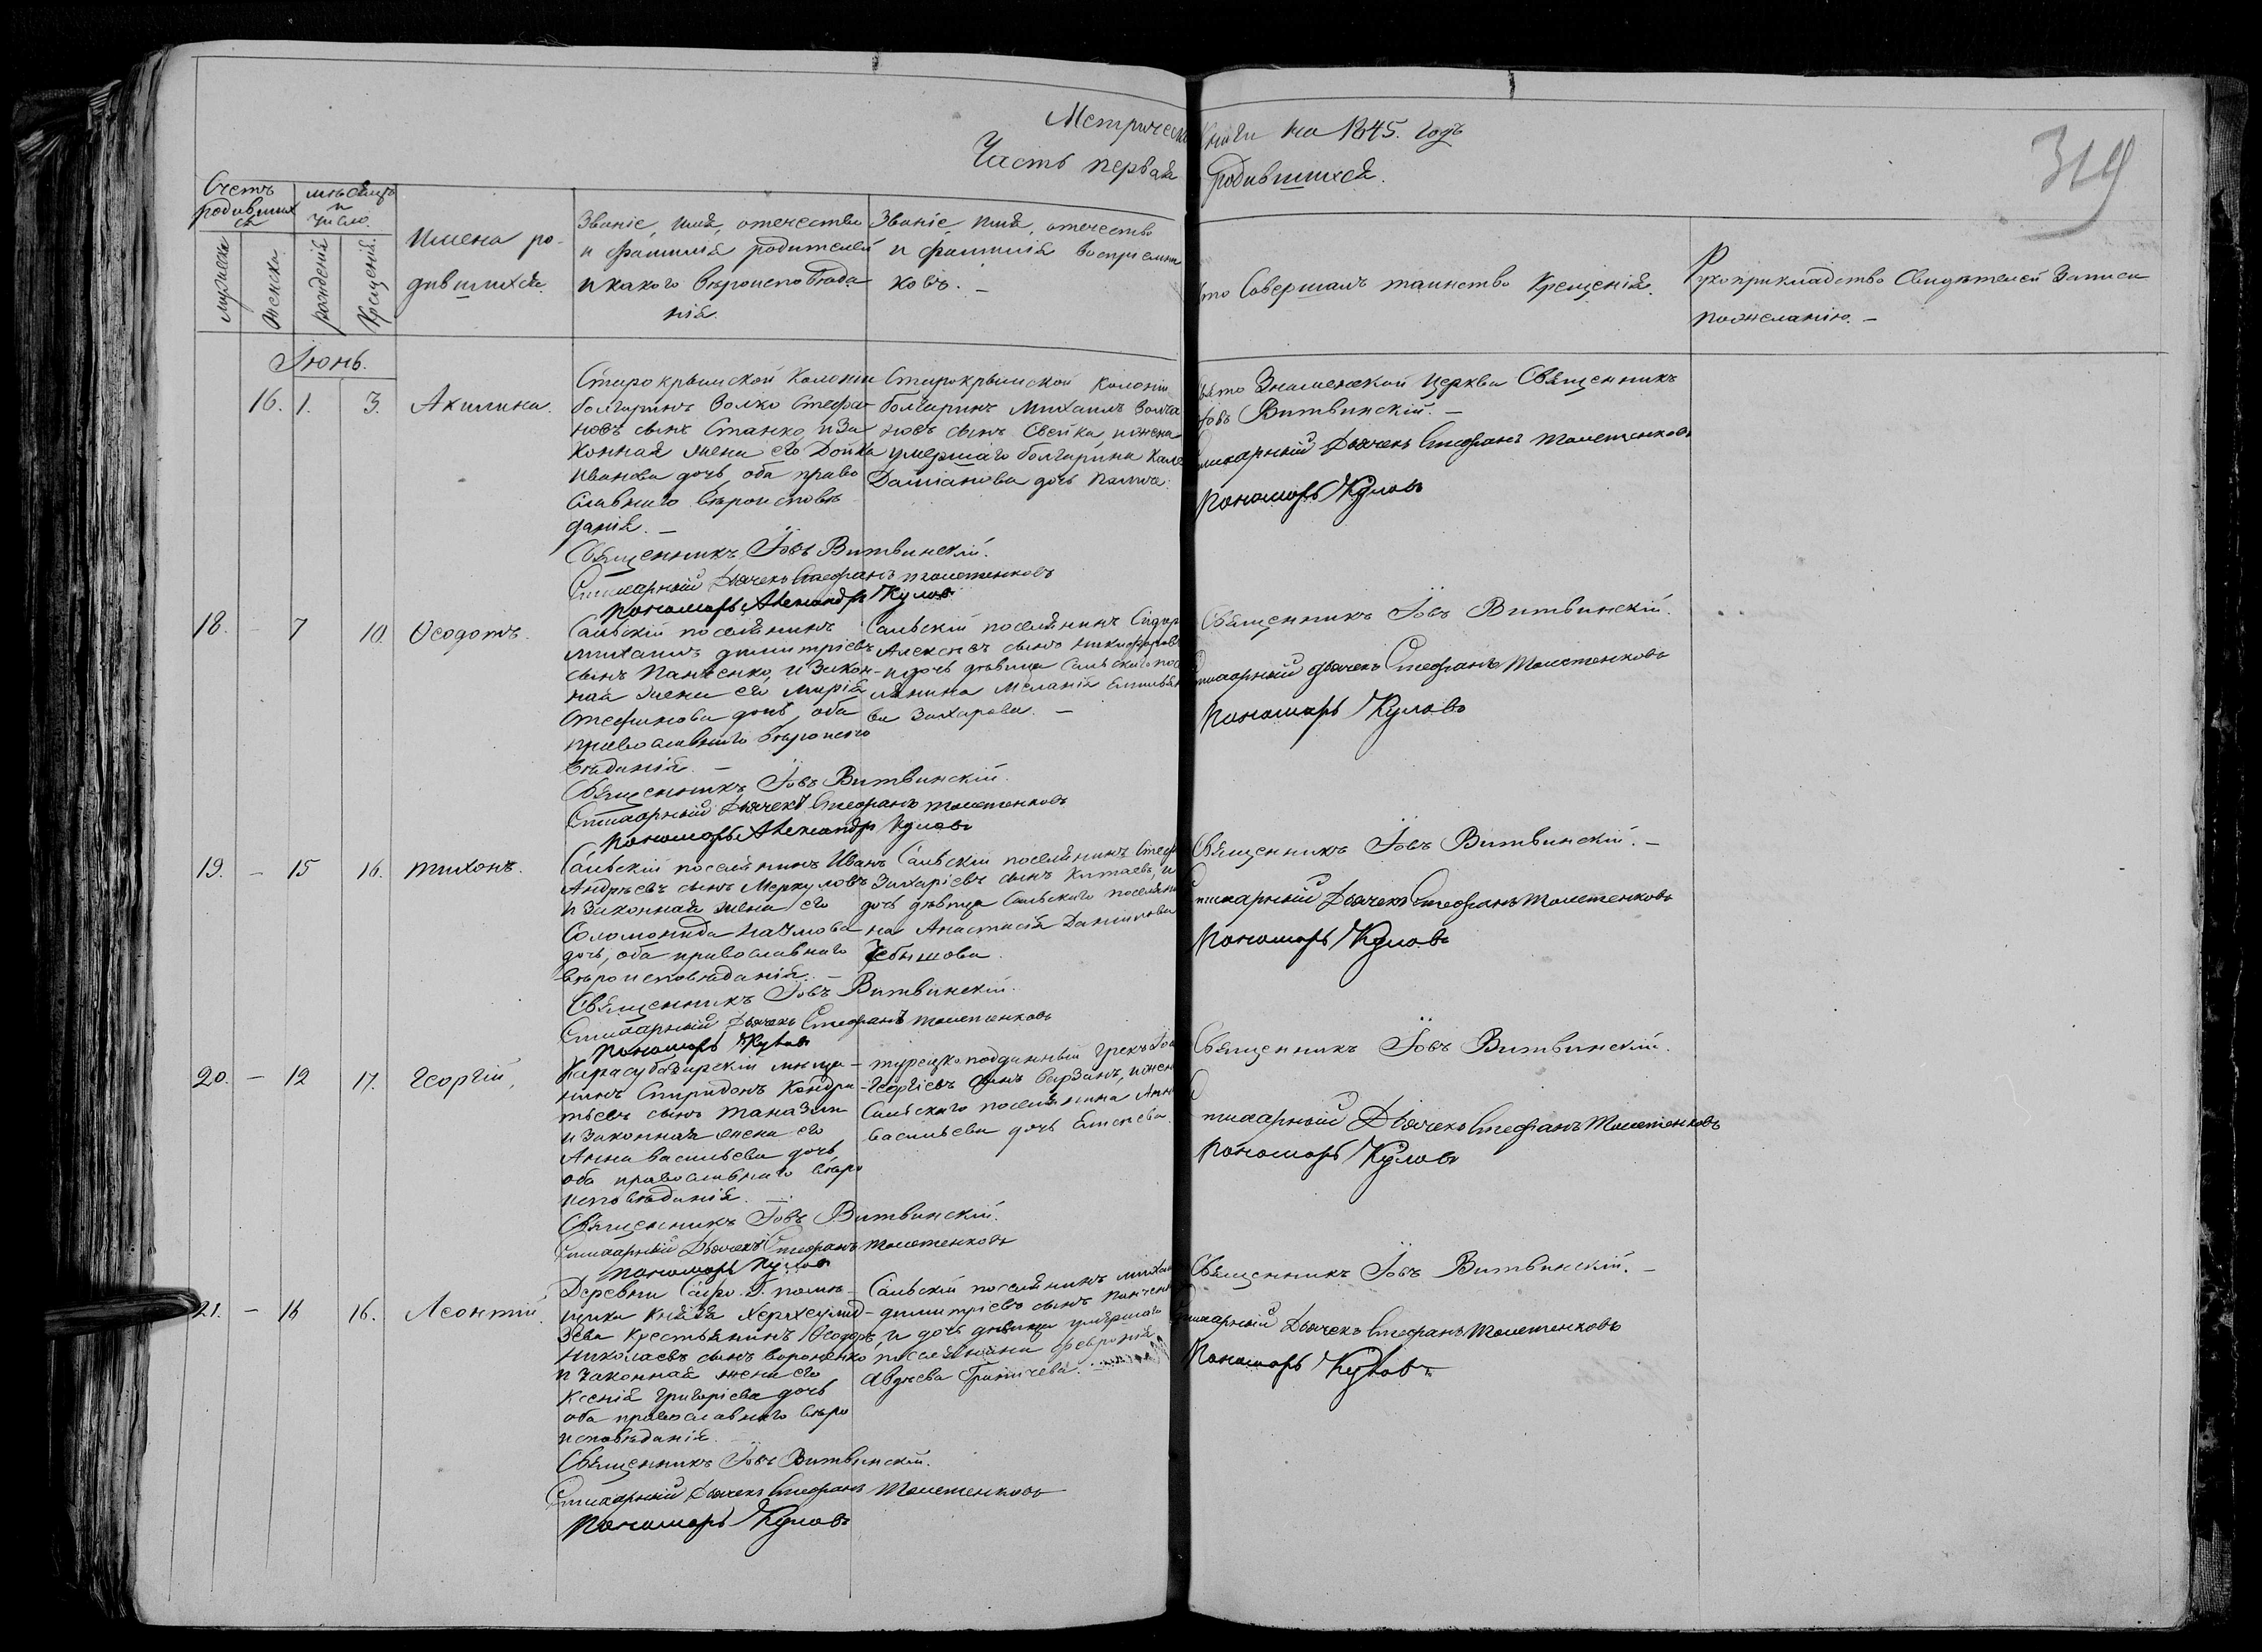 Метрической Книги на 1845. годъ
Часть первая Родившихся.
319
Счетъ родившихся
мужеска
женска
мѣсяцъ и число.
рожденія
Крещенія.
Имена ро-
дившихся.
Званіе, имя, отечество
и фамилія родителей
и какого вѣроисповѣда
нія.
Званіе, имя, отечество
и фамилія воспріемни
ковъ. —
Кто Совершалъ таинство Крещенія.
Рукоприкладство Свидѣтелей Записи
по желанію. —
Іюнь.
16. 1. 3. Акилина.
Старокрымской Колоніи
болгаринъ Волко Стефа-
новъ сынъ Станко, и За
конная жена его Дойка
Иванова дочь, оба право
славнаго вѣроисповѣ
данія. —
Священникъ Іовъ Витвинскій.
Стихарный Дьячекъ Стефанъ
Пономарь Александръ Куловъ
Старокрымской Колоніи
болгаринъ Михаилъ
новъ сынъ и жена
умершаго болгарина
Даміанова дочь
Знаменской Церкви Священникъ
Іовъ Витвинскій. —
Стихарный Дьячекъ Стефанъ
Пономарь Куловъ
18. — 7 10. Ѳеодотъ.
Сальскій поселянинъ
Михаилъ Димитріевъ
сынъ Панченко, и Закон-
ная жена его Марія
Стефанова дочь, оба
православнаго вѣроиспо
вѣданія. —
Священникъ Іовъ Витвинскій.
Стихарный Дьячекъ Стефанъ
Пономарь Александръ Куловъ
Сальскій поселянинъ Сидоръ
Алексѣевъ сынъ
и дочь дѣвица Сальскаго посе
лянина Меланія
ва Захарова. —
Священникъ Іовъ Витвинскій.
Стихарный дьячекъ Стефанъ
Пономарь Куловъ
19. — 15 16. Тихонъ.
Сальскій поселянинъ Иванъ
Андреевъ сынъ Меркуловъ
и Законная жена его
Соломонида Наумова
дочь, оба православнаго
вѣроисповѣданія. —
Священникъ Іовъ Витвинскій.
Стихарный Дьячекъ Стефанъ
Пономарь Куловъ
Сальскій поселянинъ
Захаріевъ сынъ Китаевъ, и
дочь дѣвица Сальскаго поселяни
на Анастасія Данилова
Священникъ Іовъ Витвинскій. —
Стихарный Дьячекъ Стефанъ
Пономарь Куловъ
20. — 12 17. Георгій.
Карасубазарскій мѣща-
нинъ Спиридонъ Кондра
тьевъ сынъ
и Законная жена его
Анна Васильева дочь,
оба православнаго вѣро
исповѣданія. —
Священникъ Іовъ Витвинскій.
Стихарный Дьячекъ Стефанъ
Пономарь Куловъ
турецкоподданный Грекъ
Георгіевъ сынъ и жена
Сальскаго поселянина Анна
Васильева дочь
Священникъ Іовъ Витвинскій.
Стихарный Дьячекъ Стефанъ
Пономарь Куловъ
21. — 16. Леонтій.
Деревни помѣ-
щика Князя
Крестьянинъ Ѳеодоръ
Николаевъ сынъ Вороненко,
и законная жена его
Ксенія Григоріева дочь
оба православнаго вѣро
исповѣданія.
Священникъ Іовъ Витвинскій.
Стихарный Дьячекъ Стефанъ
Пономарь Куловъ
Сальскій поселянинъ Михаилъ
Димитріевъ сынъ Панченко
и дочь дѣвица умершаго
поселянина Февронія
Авдѣева
Священникъ Іовъ Витвинскій. —
Стихарный Дьячекъ Стефанъ
Пономарь Куловъ